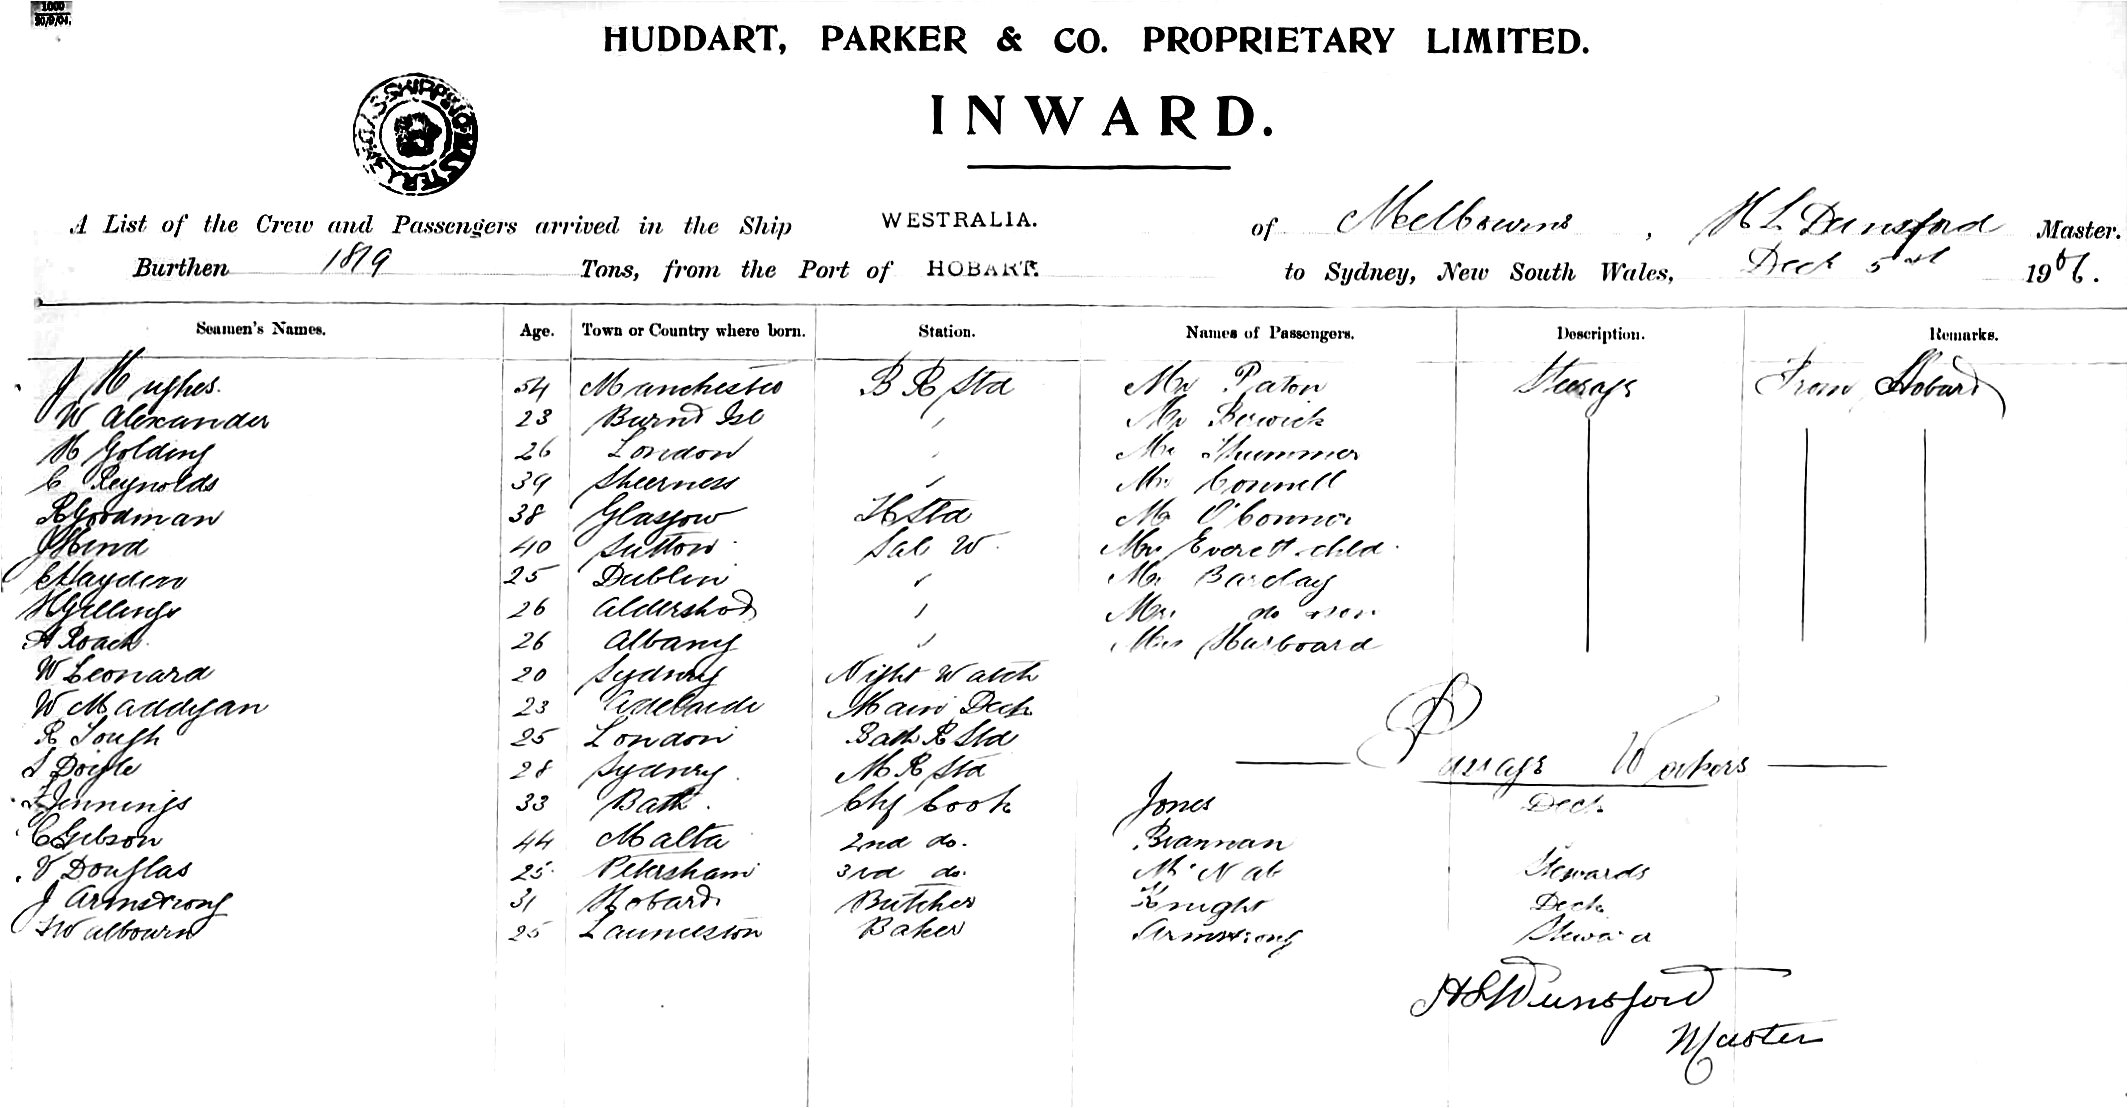 1000
20/9/04.
HUDDART, PARKER & CO. PROPRIETARY LIMITED.
INWARD.
A List of the Crew and Passengers arrived in the Ship WESTRALIA. of Melbourne, H L Dunsford Master.
Burthen 1819 Tons, from the Port of HOBART. to Sydney, New South Wales, Dec 5 1906.
Seamen's Names. Age. Town or Country where born. Station. Names of Passengers. Description. Remarks.
J Hughes. 54 Manchester B R Std Mr Paton Steerage From Hobart
W Alexander 23 Burnt Isl " Mr Berwick
H Golding 26 London " Mr Plummer
C Reynolds 39 Sheerness " Mr Connell
R Goodman 38 Glasgow H Std Mr O'Connor
J Hind 40 Sutton Sal W. Mrs Everett & chld.
C Hayden 25 Dublin " Mr Barclay
H Gillings 26 Aldershot " Mrs do
A Roach 26 Albany " Hurboard
W Leonard 20 Sydney Night Watch
W Maddigan 23 Adelaide Main Deck
R Tough 25 London Bath R Std
Doyle 28 Sydney. M R Std
Passage Workers
Jennings 33 Bath. Chf Cook Jones Deck
C Gibson 44 Malta 2nd do. Brannan
V Douglas 25 Petersham 3rd do. McNab Stewards
J Armstrong 31 Hobart Butcher Knight Deck
Walbourn 25 Launceston Baker Armstrong Steward
H L Dunsford
Master